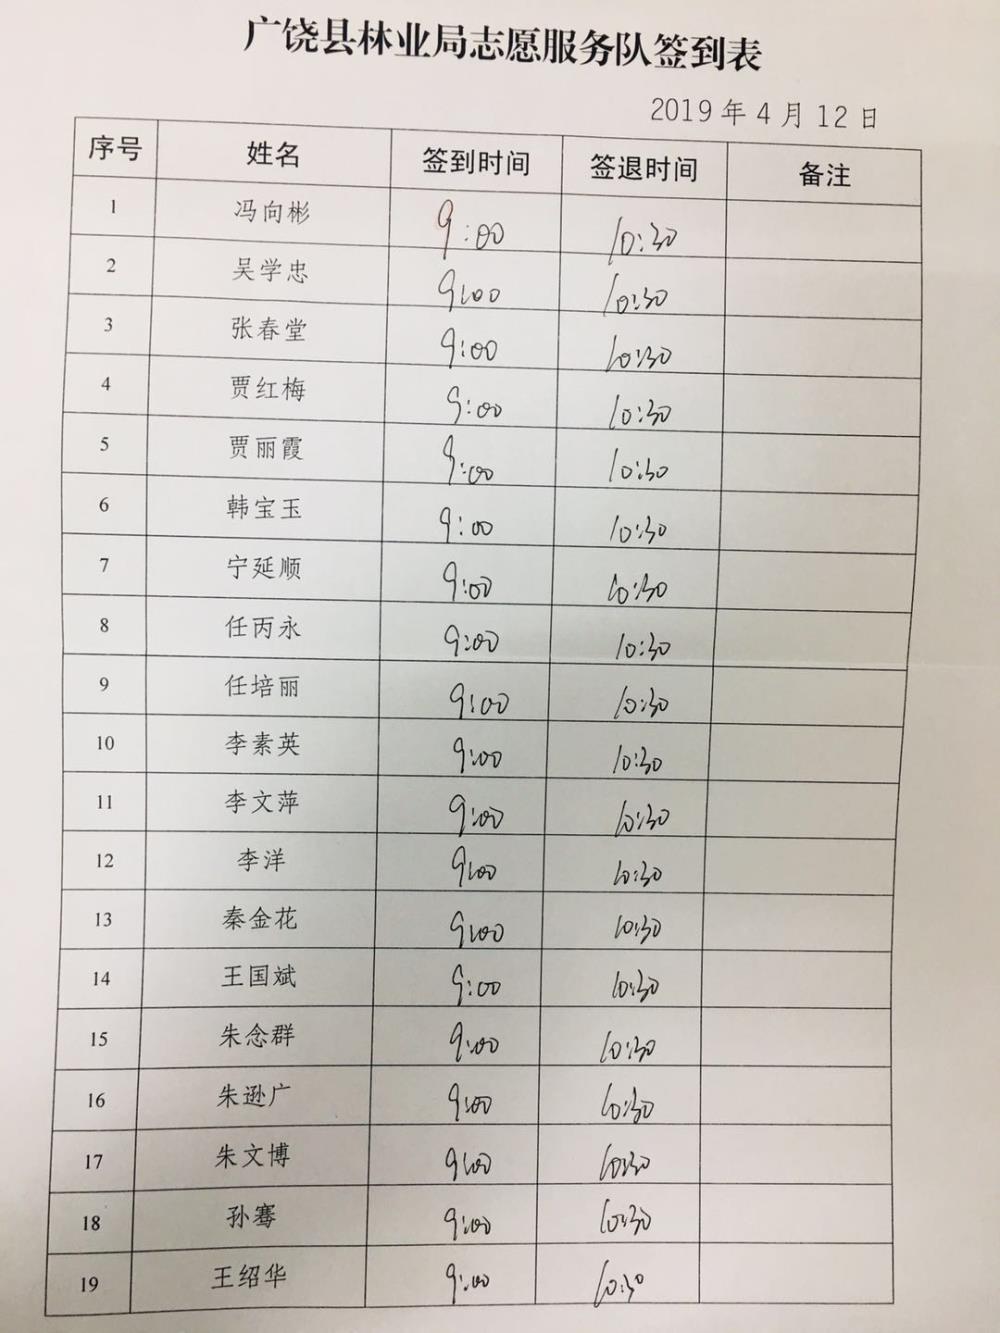 广饶县林业局志愿服务队签到表
2019年4月12日
序号 姓名 签到时间 签退时间 备注
1 冯向彬 9:00 10:30
2 吴学忠 9:00 10:30
3 张春堂 9:00 10:30
4 贾红梅 9:00 10:30
5 贾丽霞 9:00 10:30
6 韩宝玉 9:00 10:30
7 宁延顺 9:00 10:30
8 任丙永 9:00 10:30
9 任培丽 9:00 10:30
10 李素英 9:00 10:30
11 李文萍 9:00 10:30
12 李洋 9:00 10:30
13 秦金花 9:00 10:30
14 王国斌 9:00 10:30
15 朱念群 9:00 10:30
16 朱逊广 9:00 10:30
17 朱文博 9:00 10:30
18 孙骞 9:00 10:30
19 王绍华 9:00 10:30